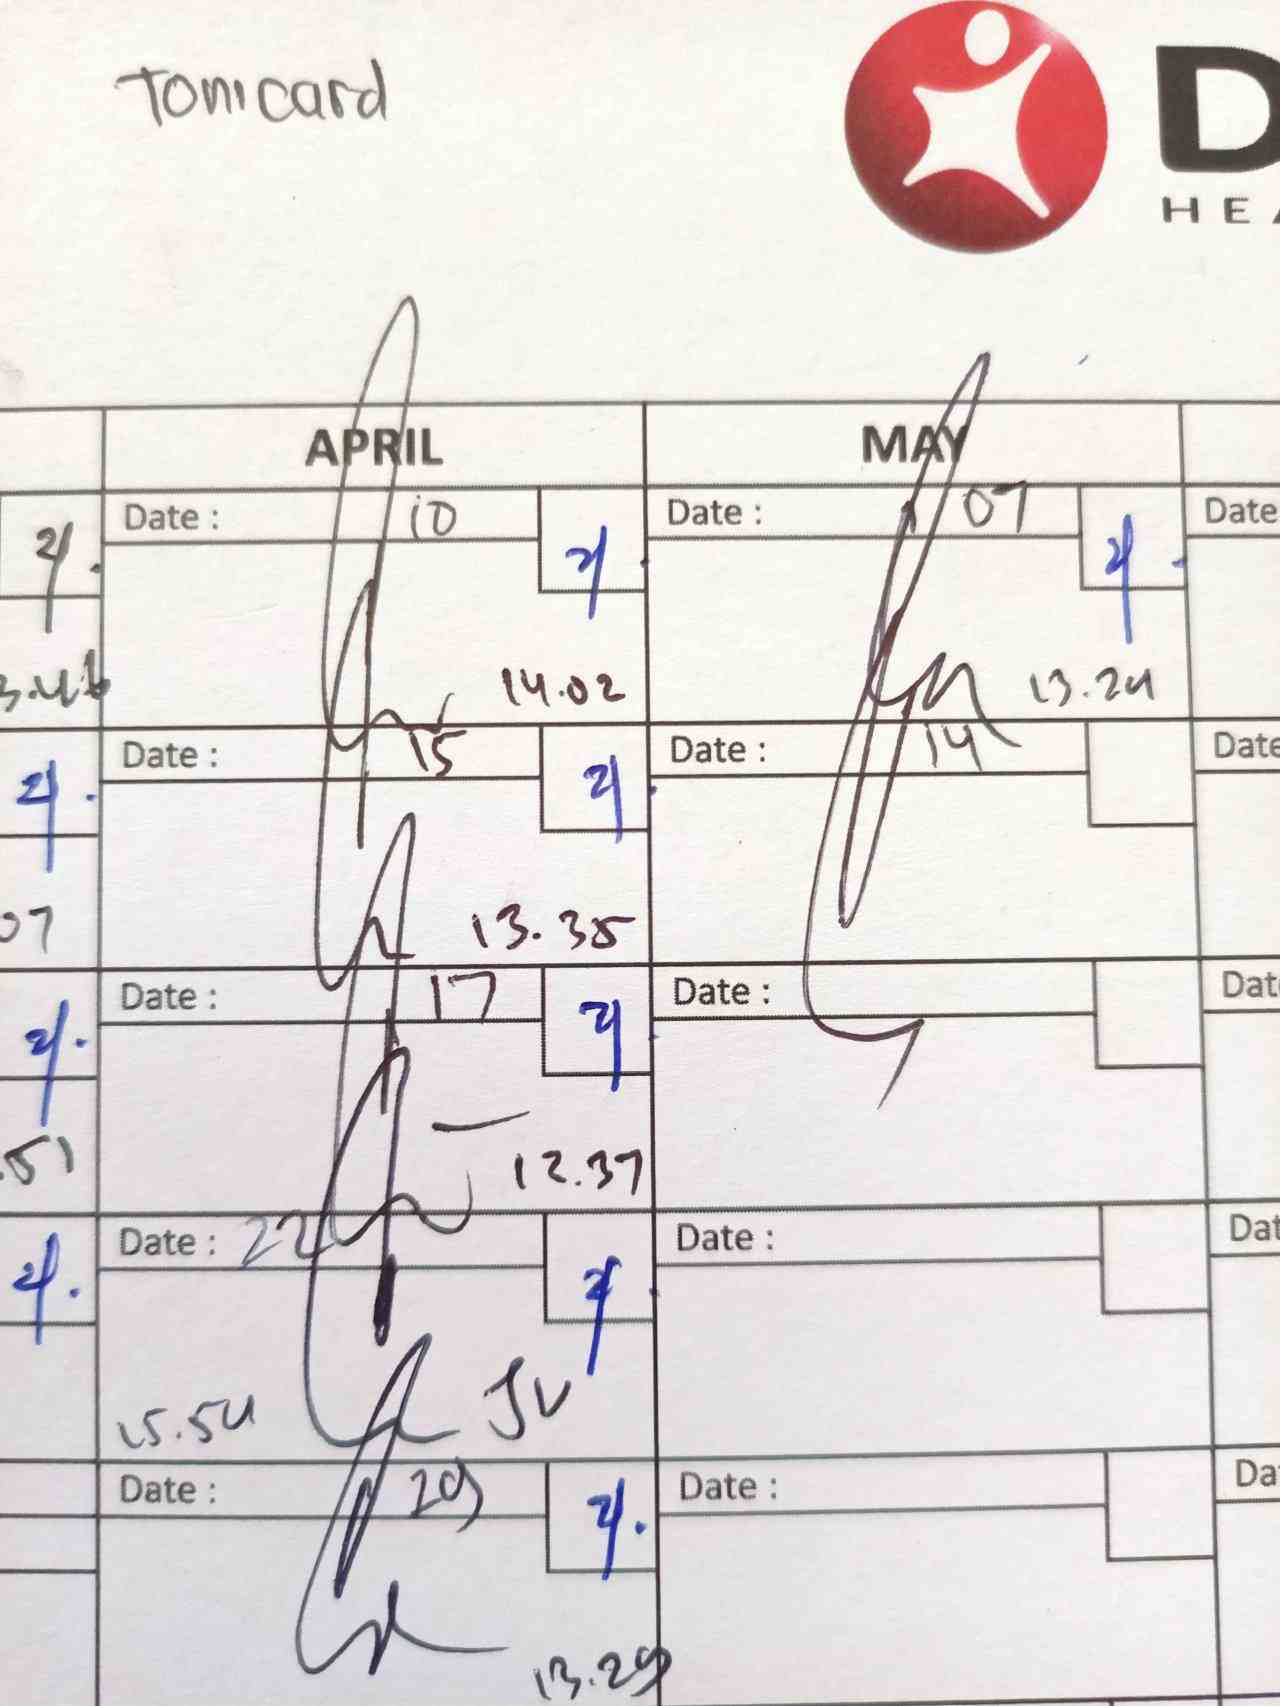 Tonicard
D
HEA
APRIL MAY
Date : 10 Date : 07 Date
3.46 14.02 13.24
Date : 15 Date : 14 Date
07 13.35
Date : 17 Date : Dat
.51 12.37
Date : 22 Date : Dat
15.54 JV
Date : 29 Date : Da
13.29